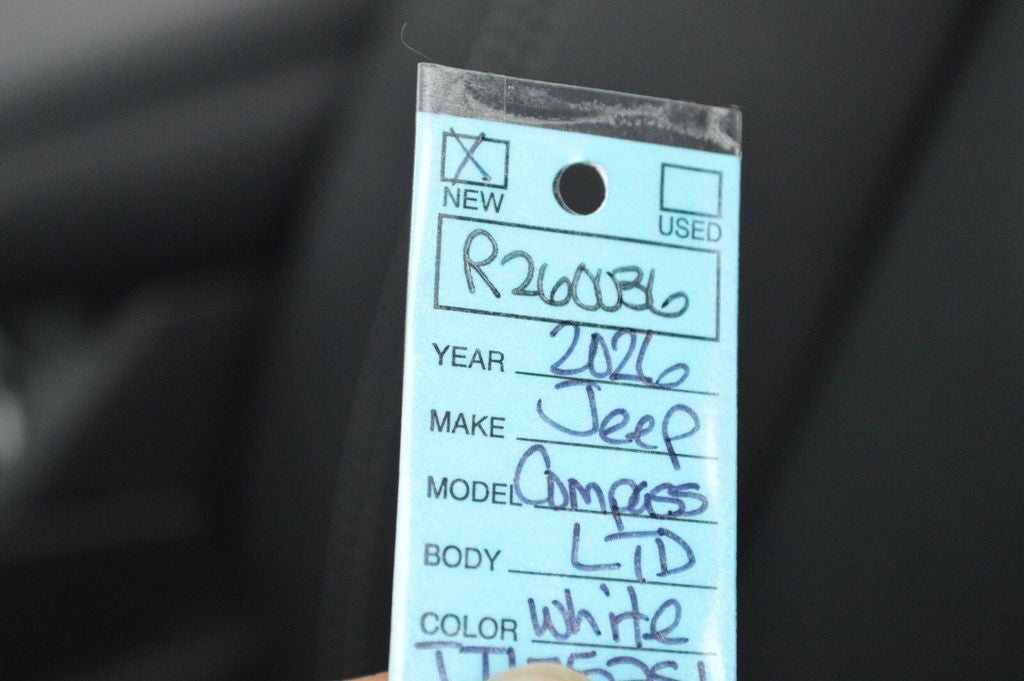 X
NEW USED
R260036
YEAR 2026
MAKE Jeep
MODEL Compass
BODY LTD
COLOR white